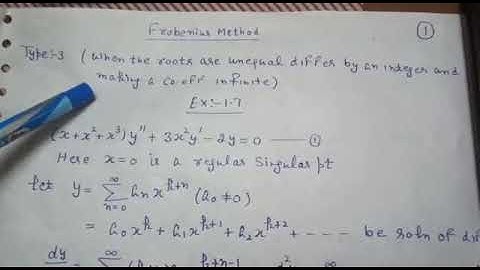 Frobenius Method
①
Type:-3 (When the roots are unequal differ by an integer and
making a co.eff infinite)
Ex:-1.7
(x+x²+x³)y'' + 3x²y' - 2y = 0 —— ①
Here x=0 is a regular singular pt
Let y = ∑_{n=0}^{∞} h_n x^{k+n} (h_0≠0)
= h_0 x^k + h_1 x^{k+1} + h_2 x^{k+2} + ---- be soln of di
dy ∞ k+n-1